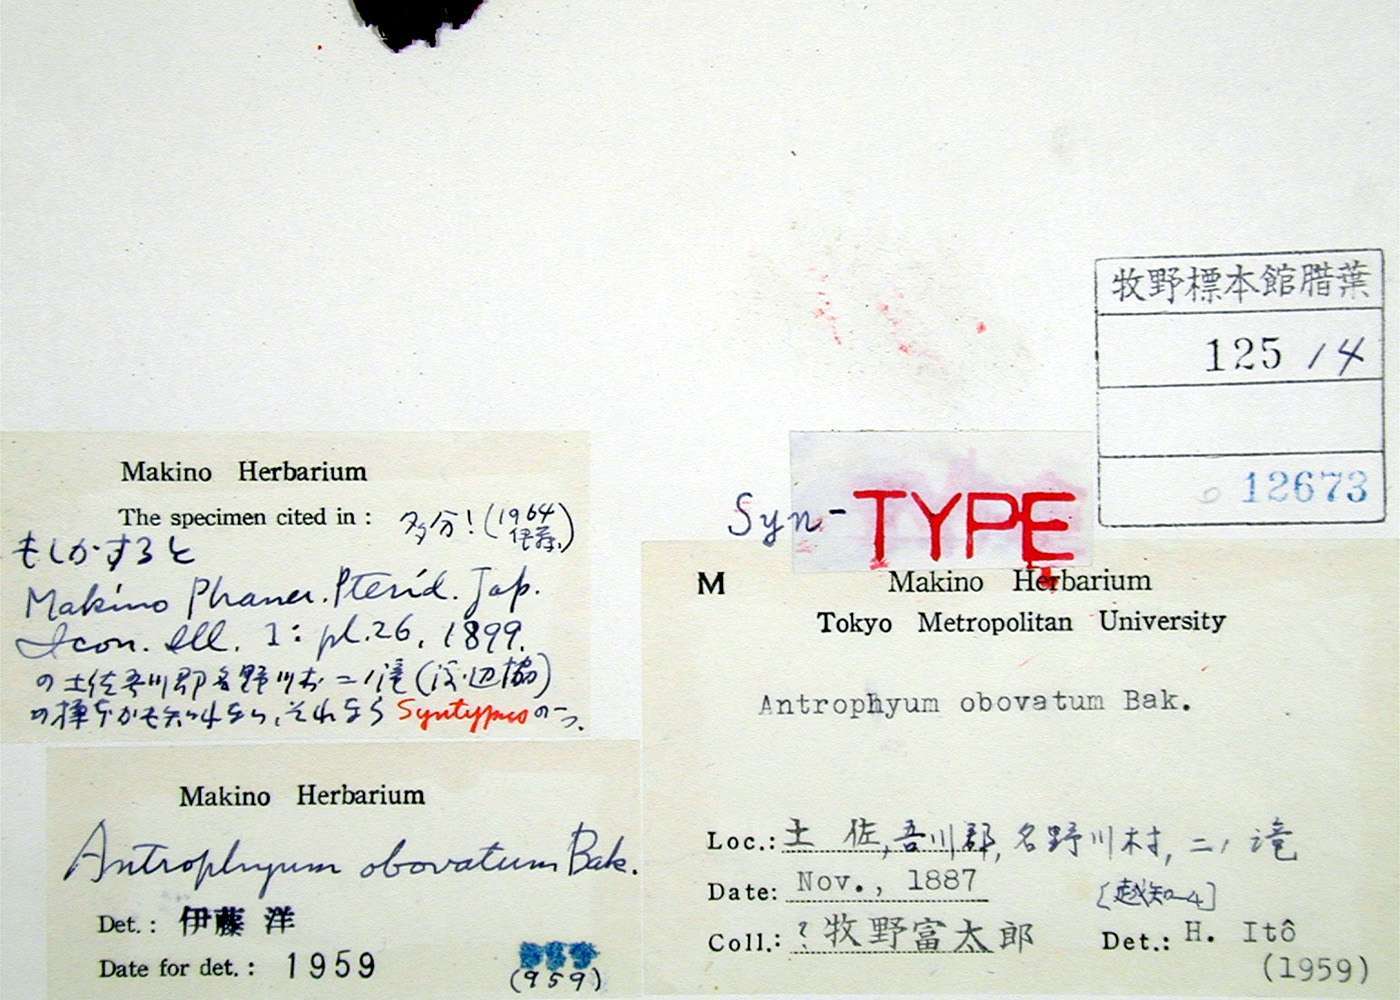 牧野標本館腊葉
125 14
12673
Syn-TYPE
Makino Herbarium
The specimen cited in : 多分! (1964 伊藤)
もしかすると
Makino Phaner. Pterid. Jap.
Icon. Ill. 1: pl.26, 1899.
の土佐吾川郡名野川村二ノ滝(渡辺協)
の標本かも知れない、それなら Syntypes の一つ.
Makino Herbarium
Antrophyum obovatum Bak.
Det. : 伊藤 洋
Date for det. : 1959
(959)
M Makino Herbarium
Tokyo Metropolitan University
Antrophyum obovatum Bak.
Loc.: 土佐, 吾川郡, 名野川村, 二ノ滝
Date: Nov., 1887 [越知-4]
Coll.: ? 牧野富太郎 Det.: H. Itô
(1959)